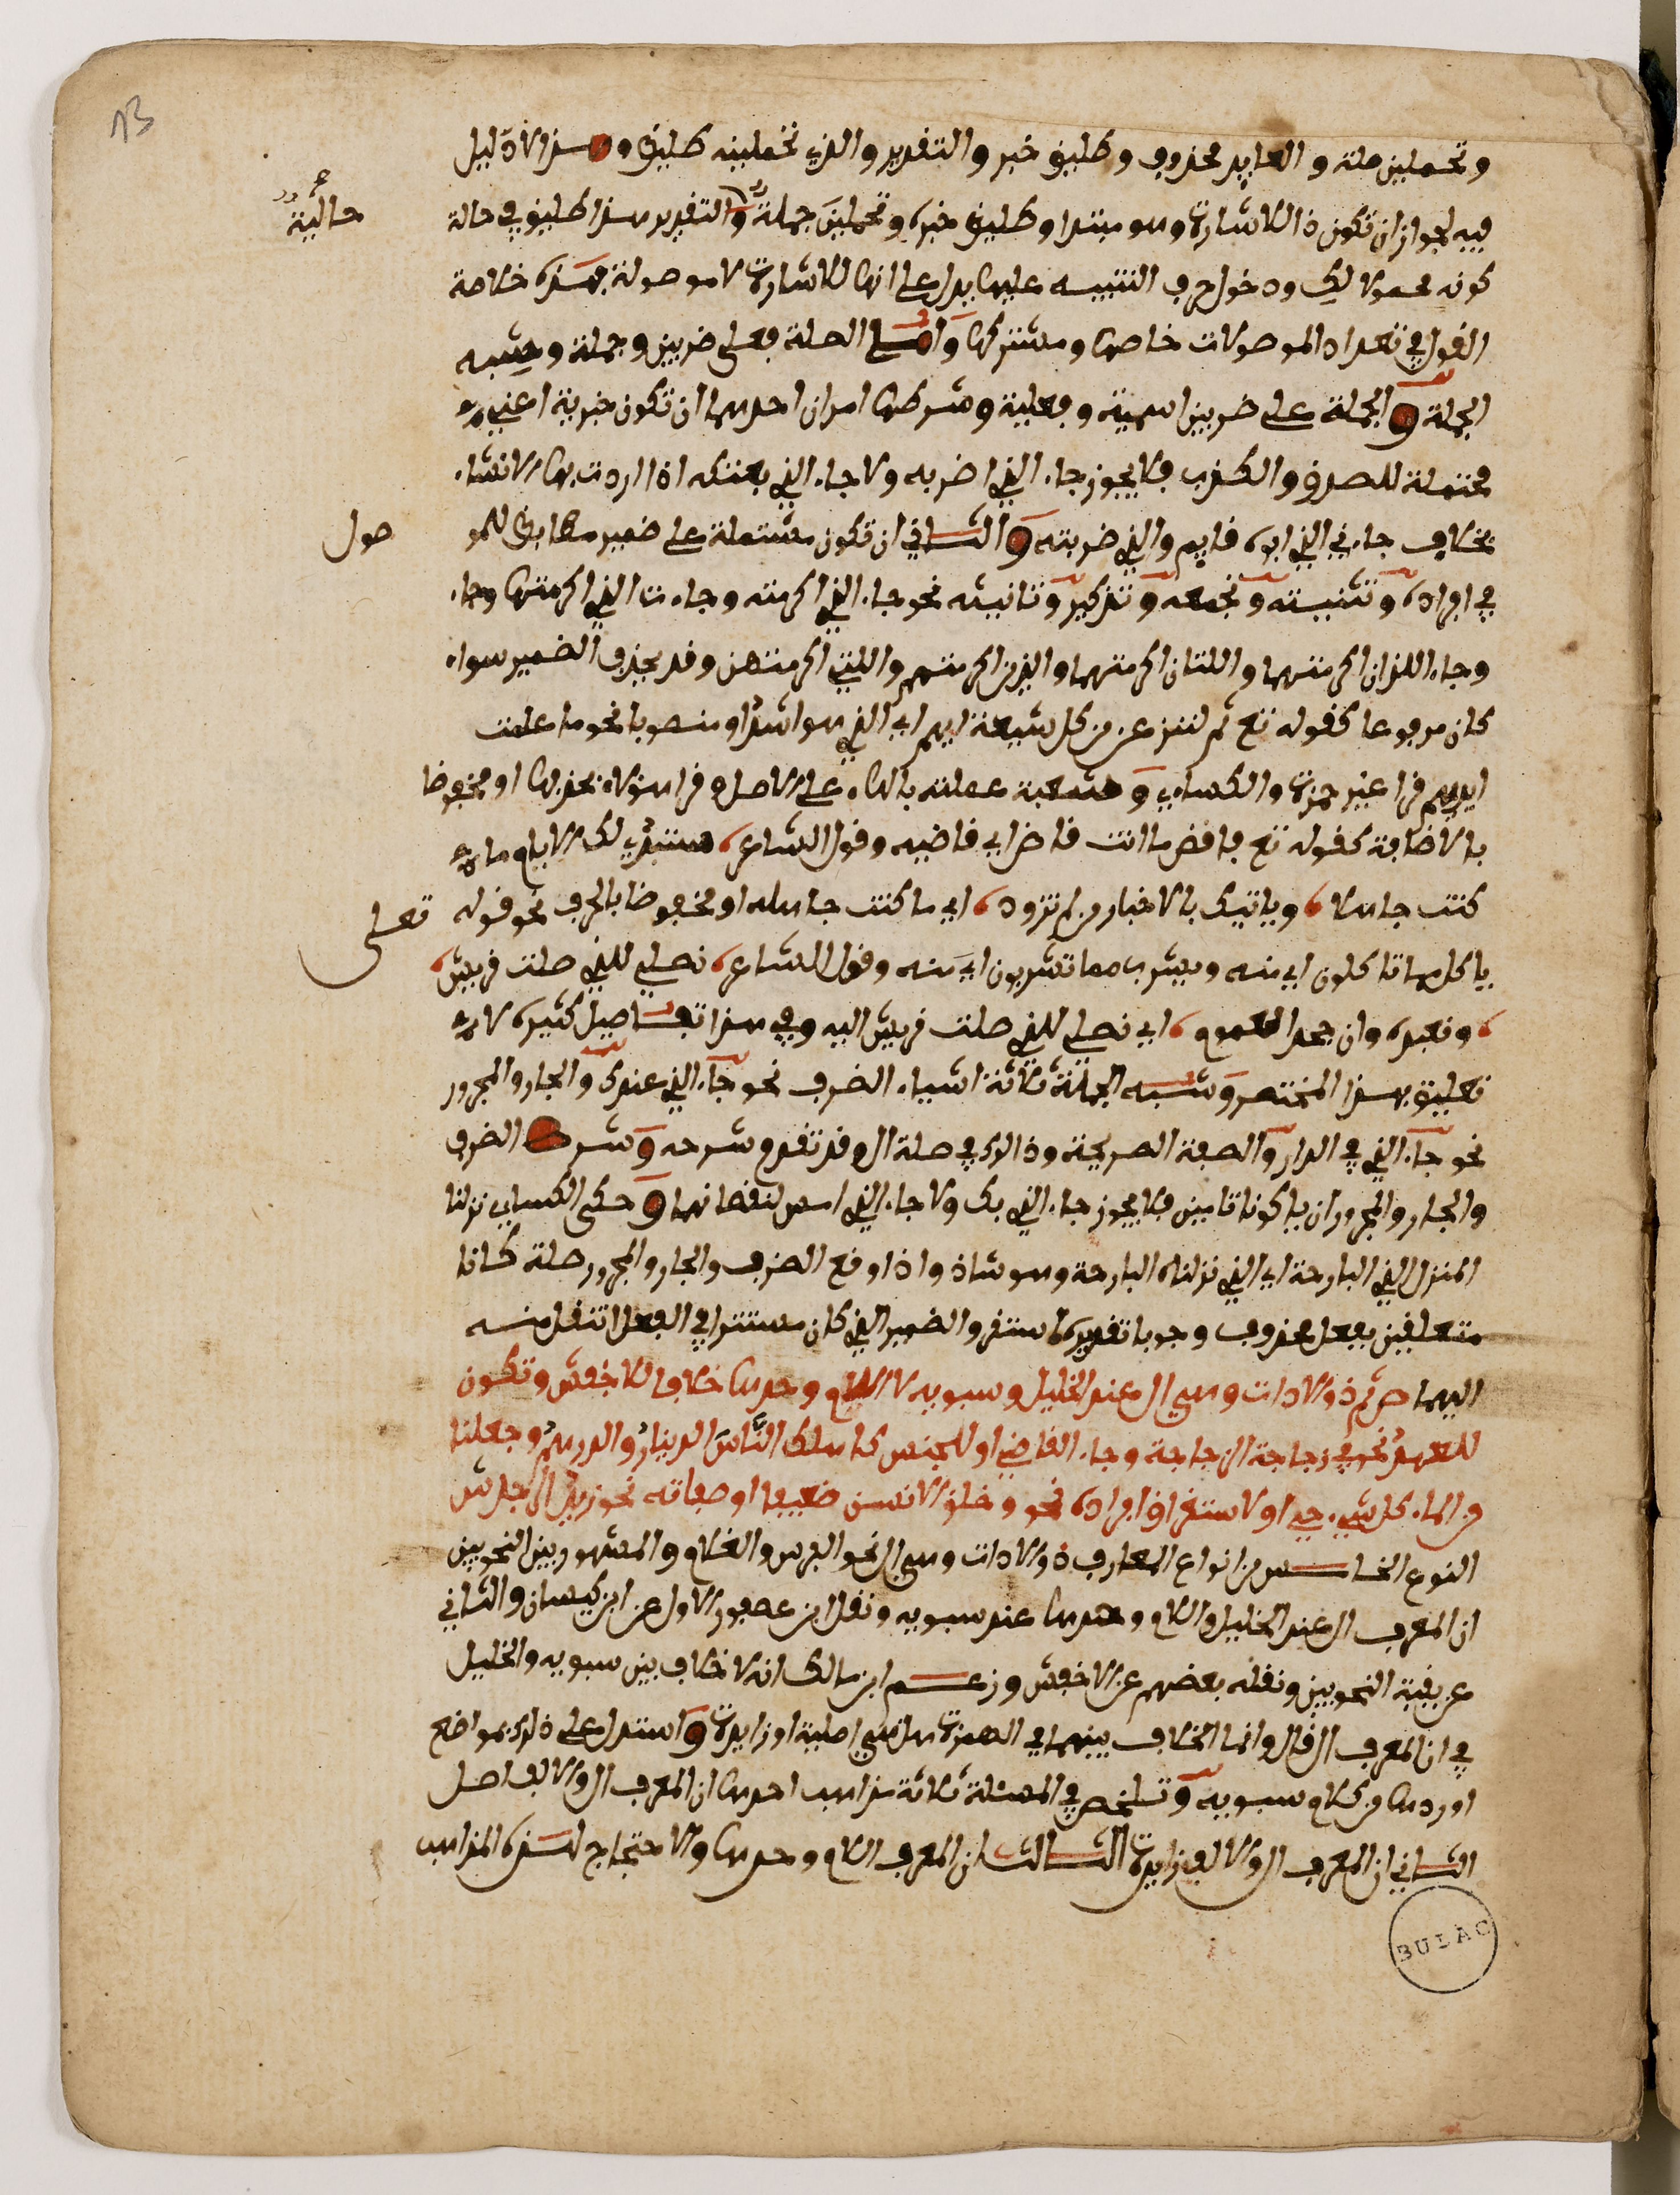 13
وتحملين صلة والعايد محذوف وطليق خبر والتقدير والذي تحملينه طليق وهذا لا دليل
فيه لجواز ان تكون ذا للاشارة وهو مبتدا وطليق خبره وتحملين جملة حالية والتقدير هذا طليق في حالة
كونه محمولا لك ودخول حرف التنبيه عليها يدل على انها للاشارة لا موصولة فهذه خلاصة
القول في تعداد الموصولات خاصها ومشتركها واما الصلة فعلى ضربين وجملة وشبه
الجملة والجملة على ضربين اسمية وفعلية وشرطها امران احدهما ان تكون خبرية اعني
محتملة للصدق والكذب فلا يجوز جاء الذي اضربه ولا جاء الذي بعتكه اذا اردت بها الانشاء
بخلاف جاءني الذي ابوه قايم والذي ضربته والثاني ان تكون مشتملة على ضمير مطابق للمو صول
في افراده وتثنيته وجمعه وتذكيره وتانيثه نحو جاء الذي اكرمته وجاءت التي اكرمتها وجاء
وجاء اللذان اكرمتهما واللتان اكرمتهما والذين اكرمتهم واللتي اكرمتهن وقد يحذف الضمير سواء
كان مرفوعا كقوله تع ثم لننزعن من كل شيعة ايهم اي الذي هو اشد او منصوبا نحو ما عملت
ايديهم قرا غير حمزة والكساءي وشعبة عملته بالهاء على الاصل وقرا هؤلاء بحذفها او مخفوضا
بالاضافة كقوله تع فاقض ما انت قاض اي قاضيه وقول الشاعر ستبدي لك الايام ما
كنت جاهلا وياتيك بالاخبار من لم تزود اي ما كنت جاهله او مخفوضا بالحرف نحو قوله تعلى
ياكل مما تاكلون اي منه ويشرب مما تشربون اي منه وقول الشاعر نصلي للذي صلت قريش
ونعبده وان جحد العموم اي نصلي للذي صلت قريش اليه وفي هذا تفاصيل كثيرة لا
تعليق بهذا المختصر وشبه الجملة ثلاثة اشياء الضرف نحو جاء الذي عندك والجار والمجرور
نحو جاء الذي في الدار والصفة الصريحة وذالك في صلة ال وقد تقدم شرحه وشرط الضرف
والجار والمجرور ان يكونا تامين فلا يجوز جاء الذي بك ولا جاء الذي امس لنقصانهما وحكى الكساءي نزلنا
المنزل الذي البارحة اي الذي نزلناه البارحة وهو شاذ واذا وقع الضرف والجار والمجرور صلة كانا
متعلقين بفعل محذوف وجوبا تقديره استقر والضمير الذي كان مستترا في الفعل انتقل منه
اليهما ص ثم ذو الادات وهي ال عند الخليل وسبويه لا اللام وحدها خلافا للاخفش وتكون
للعهد نحو في زجاجة الزجاجة وجاء القاضي او للجنس كاهلك الناس الدينار والدرهم وجعلنا
من الماء كل شيء حي او لاستغراق افراده نحو وخلق الانسن ضعيفا او صفاته نحو زيد الرجل ش
النوع الخامس من انواع المعارف ذو الادات وهي ال نحو الفرس والغلام والمشهور بين النحويين
ان المعرف ال عند الخليل واللام وحدها عند سبويه ونقل ابن عصفور الاول عن ابن كيسان والثاني
عن بقية النحويين ونقله بعضهم عن الاخفش وزعم ابن مالك انه لا خلاف بين سبويه والخليل
في ان المعرف ال قال وانما الخلاف بينهما في الهمزة هل هي اصلية او زايدة واستدل على ذالك بمواضع
اوردها من كلام سبويه وتلخص في المسئلة ثلاثة مذاهب احدها ان المعرف ال والالف اصل
الثاني ان المعرف ال والالف زايدة الثالث ان المعرف اللام وحدها والاحتجاج لهذه المذاهب
BULAC